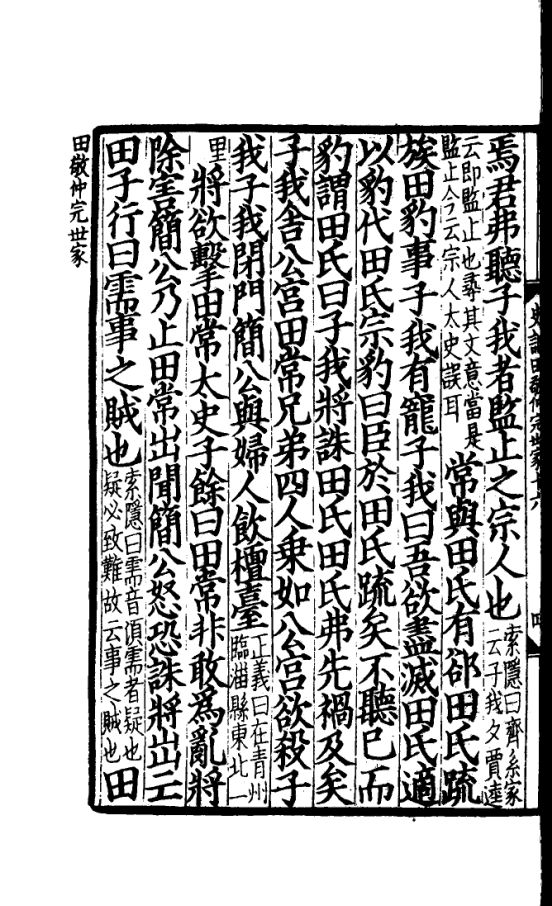 焉君弗聽子我者監止之宗人也索隱曰齊系家云子我夕賈逵
云即監止也尋其文意當是監止今云宗人太史誤耳常與田氏有郤田氏疏
族田豹事子我有寵子我曰吾欲盡滅田氏適
以豹代田氏宗豹曰臣於田氏疏矣不聽已而
豹謂田氏曰子我將誅田氏田氏弗先禍及矣
子我舍公宮田常兄弟四人乘如公宮欲殺子
我子我閉門簡公與婦人飲檀臺正義曰在青州臨淄縣東北一
里將欲擊田常太史子餘曰田常非敢為亂將
除害簡公乃止田常出聞簡公怒恐誅將出亡
田子行曰需事之賊也索隱曰需音須需者疑也疑必致難故云事之賊也田
田敬仲完世家